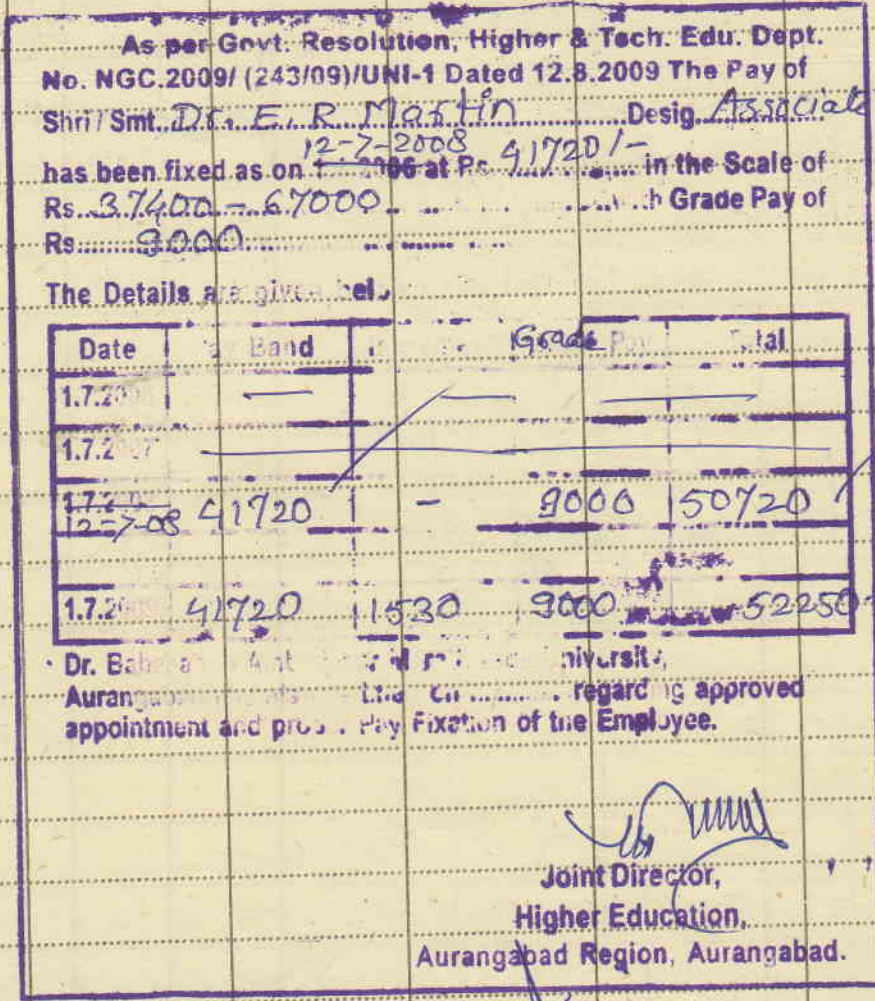 As per Govt. Resolution, Higher & Tech. Edu. Dept.
No. NGC.2009/ (243/09)/UNI-1 Dated 12.8.2009 The Pay of
Shri / Smt. Dr. E. R Martin Desig. Associate
12-7-2008
has been fixed as on at Rs 41720/- in the Scale of
Rs. 37400 - 67000 Grade Pay of
Rs. 9000
The Details are given
Date Band Grade Pay Total
1.7.2006 — — —
1.7.2007
12-7-08 41720 - 9000 50720
1.7.2009 41720 1530 9000 52250
Dr. University,
regarding approved
appointment and Pay Fixation of the Employee.
Joint Director,
Higher Education,
Aurangabad Region, Aurangabad.